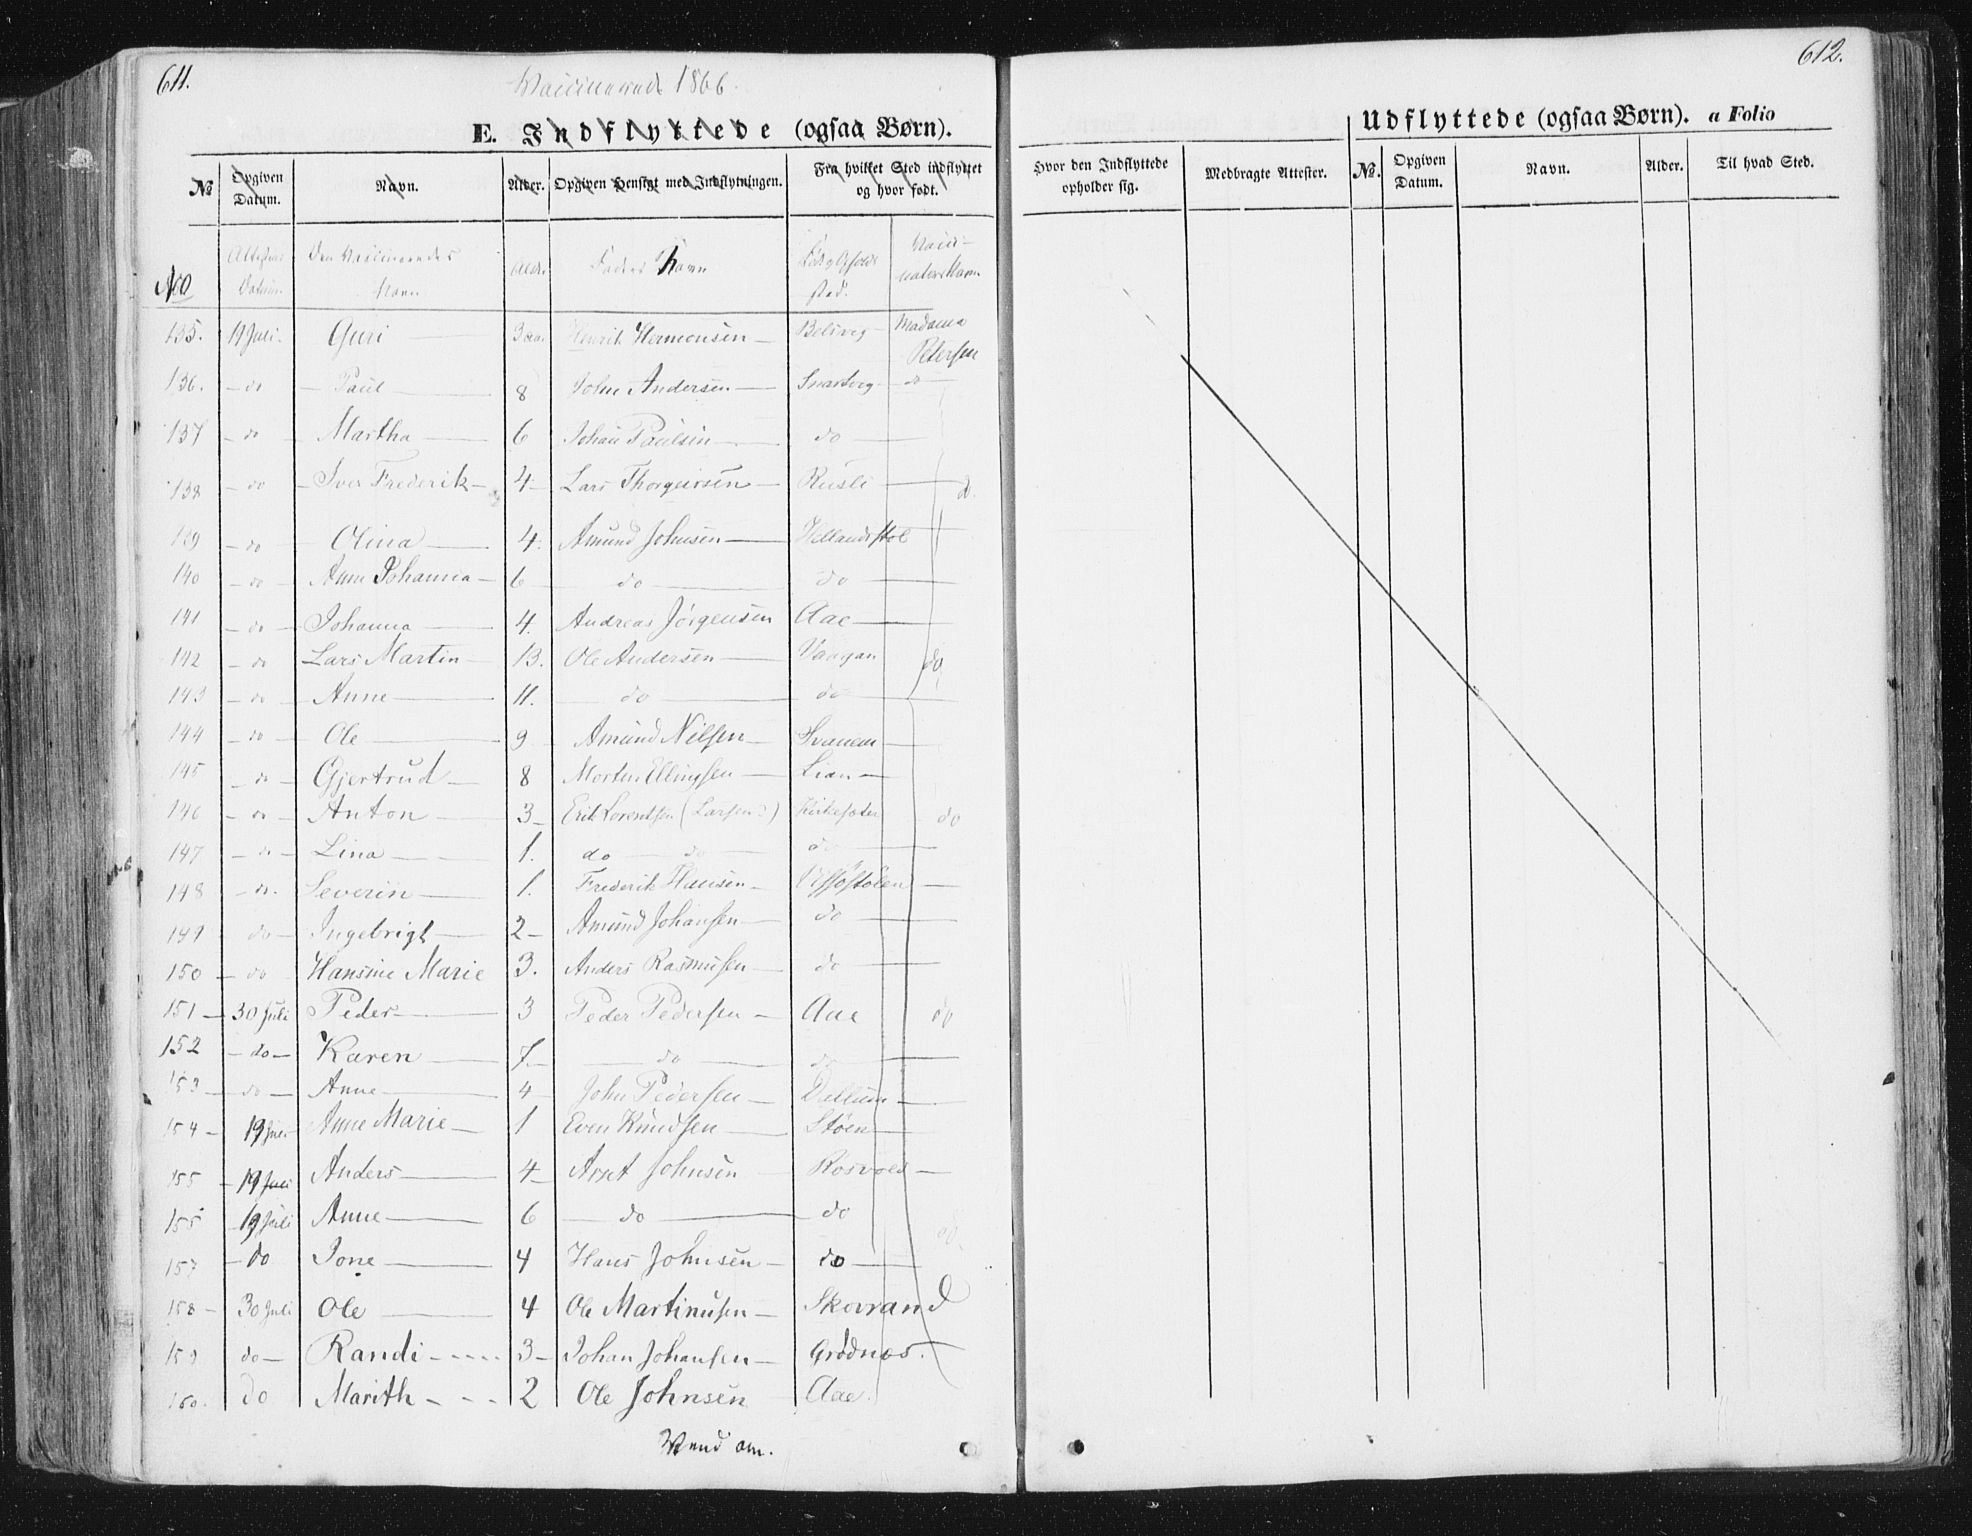 611.
Vaccinerede 1866.
E. Indflyttede (ogsaa Børn).
No Opgiven Datum. Navn. Alder. Opgiven Hensigt med Indflytningen. Fra hvilket Sted indflyttet og hvor født.
No Attestens Datum Den Vaccineredes Navn Alder Faders Navn Opholdssted. Vaccinateurs Navn
135. 19 Juli. Guri 3 Henrik Hermonsen Belsvig Madame Petersen
136. do Paul 8 John Andersen Snartvig do
137 do Martha 6 Johan Paulsen do
138 do Iver Frederik 4 Lars Thorgeirsen Rusli d.
139 do Olina 4. Amund Johnsen Hellandstøl
140 do Anne Johanna 6 do do
141 do Johanna 4. Andreas Jørgensen Aae
142 do Lars Martin 13. Ole Andersen Vaagan do
143 do Anne 11. do do
144 do Ole 9 Amund Nilsen Svanem
145 do Gjertrud 8 Morten Ellingsen Lian
146 do Anton 3 Erik Lorentsen (Larsen?) Kirkesæter do
147 do Lina 1. do do do
148 do. Severin 1. Frederik Hansen
149 do Ingebrigt 2 Amund Johansen do
150 do Hansine Marie 3. Anders Rasmusen do
151 30 Juli Peder 3 Peder Pedersen Aae do
152 do Karen 7. do do
153 do Anne 4 John Pedersen Dallum
154 19 Juli Anne Marie 1 Even Knudsen Støen
155 19 Juli Anders 4 Arnt Johnsen Rosvold
155 19 Juli Anne 6 do do
157 do Jone 4 Hans Johnsen do
158 30 Juli Ole 4 Ole Martinusen Skovrand
159 do Randi 3 Johan Johansen Grødnæs.
160. do Marith 2 Ole Johnsen Aae.
Vend om.
612.
Udflyttede (ogsaa Børn). a Folio
Hvor den Indflyttede opholder sig. Medbragte Attester. No. Opgiven Datum. Navn. Alder. Til hvad Sted.